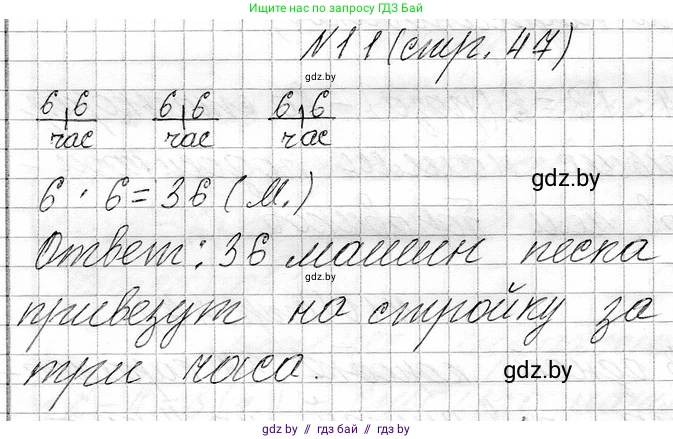 Ищите нас в поисковике по запросу ГДЗ БАЙ
№11(стр. 47)
gdz.by
6 6 6 6 6 6
час час час
6 · 6 = 36 (м.)
gdz.by
Ответ: 36 машин песка
gdz.by
привезут на стройку за
три часа.
gdz.by
gdz.by // гдз бай // gdz.by // гдз бай // gdz.by